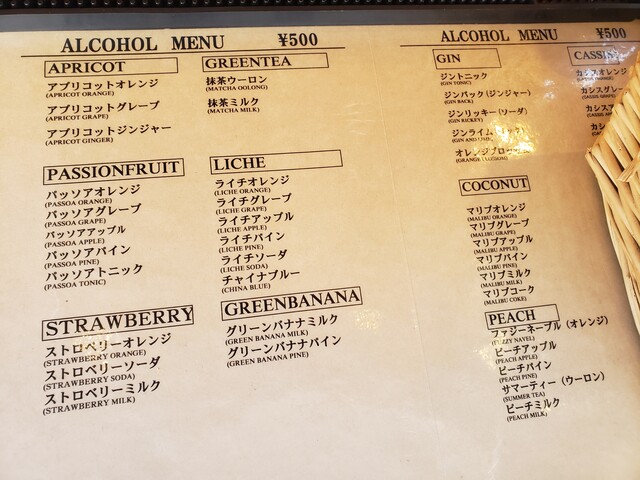 ALCOHOL MENU ¥500
APRICOT
アプリコットオレンジ
(APRICOT ORANGE)
アプリコットグレープ
(APRICOT GRAPE)
アプリコットジンジャー
(APRICOT GINGER)
PASSIONFRUIT
パッソアオレンジ
(PASSOA ORANGE)
パッソアグレープ
(PASSOA GRAPE)
パッソアアップル
(PASSOA APPLE)
パッソアパイン
(PASSOA PINE)
パッソアトニック
(PASSOA TONIC)
STRAWBERRY
ストロベリーオレンジ
(STRAWBERRY ORANGE)
ストロベリーソーダ
(STRAWBERRY SODA)
ストロベリーミルク
(STRAWBERRY MILK)
GREENTEA
抹茶ウーロン
(MATCHA OOLONG)
抹茶ミルク
(MATCHA MILK)
LICHE
ライチオレンジ
(LICHE ORANGE)
ライチグレープ
(LICHE GRAPE)
ライチアップル
(LICHE APPLE)
ライチパイン
(LICHE PINE)
ライチソーダ
(LICHE SODA)
チャイナブルー
(CHINA BLUE)
GREENBANANA
グリーンバナナミルク
(GREEN BANANA MILK)
グリーンバナナパイン
(GREEN BANANA PINE)
ALCOHOL MENU ¥500
GIN
ジントニック
(GIN TONIC)
ジンバック(ジンジャー)
(GIN BACK)
ジンリッキー(ソーダ)
(GIN RICKEY)
ジンライム
(GIN AND
オレンジ
(ORANGE
COCONUT
マリブオレンジ
(MALIBU ORANGE)
マリブグレープ
(MALIBU GRAPE)
マリブアップル
(MALIBU APPLE)
マリブパイン
(MALIBU PINE)
マリブミルク
(MALIBU MILK)
マリブコーク
(MALIBU COKE)
PEACH
ファジーネーブル(オレンジ)
(FUZZY NAVEL)
ピーチアップル
(PEACH APPLE)
ピーチパイン
(PEACH PINE)
サマーティー(ウーロン)
(SUMMER TEA)
ピーチミルク
(PEACH MILK)
CASSIS
カシスオレンジ
(CASSIS ORANGE)
カシスグレ
(CASSIS GRAPE)
カシスア
カシ